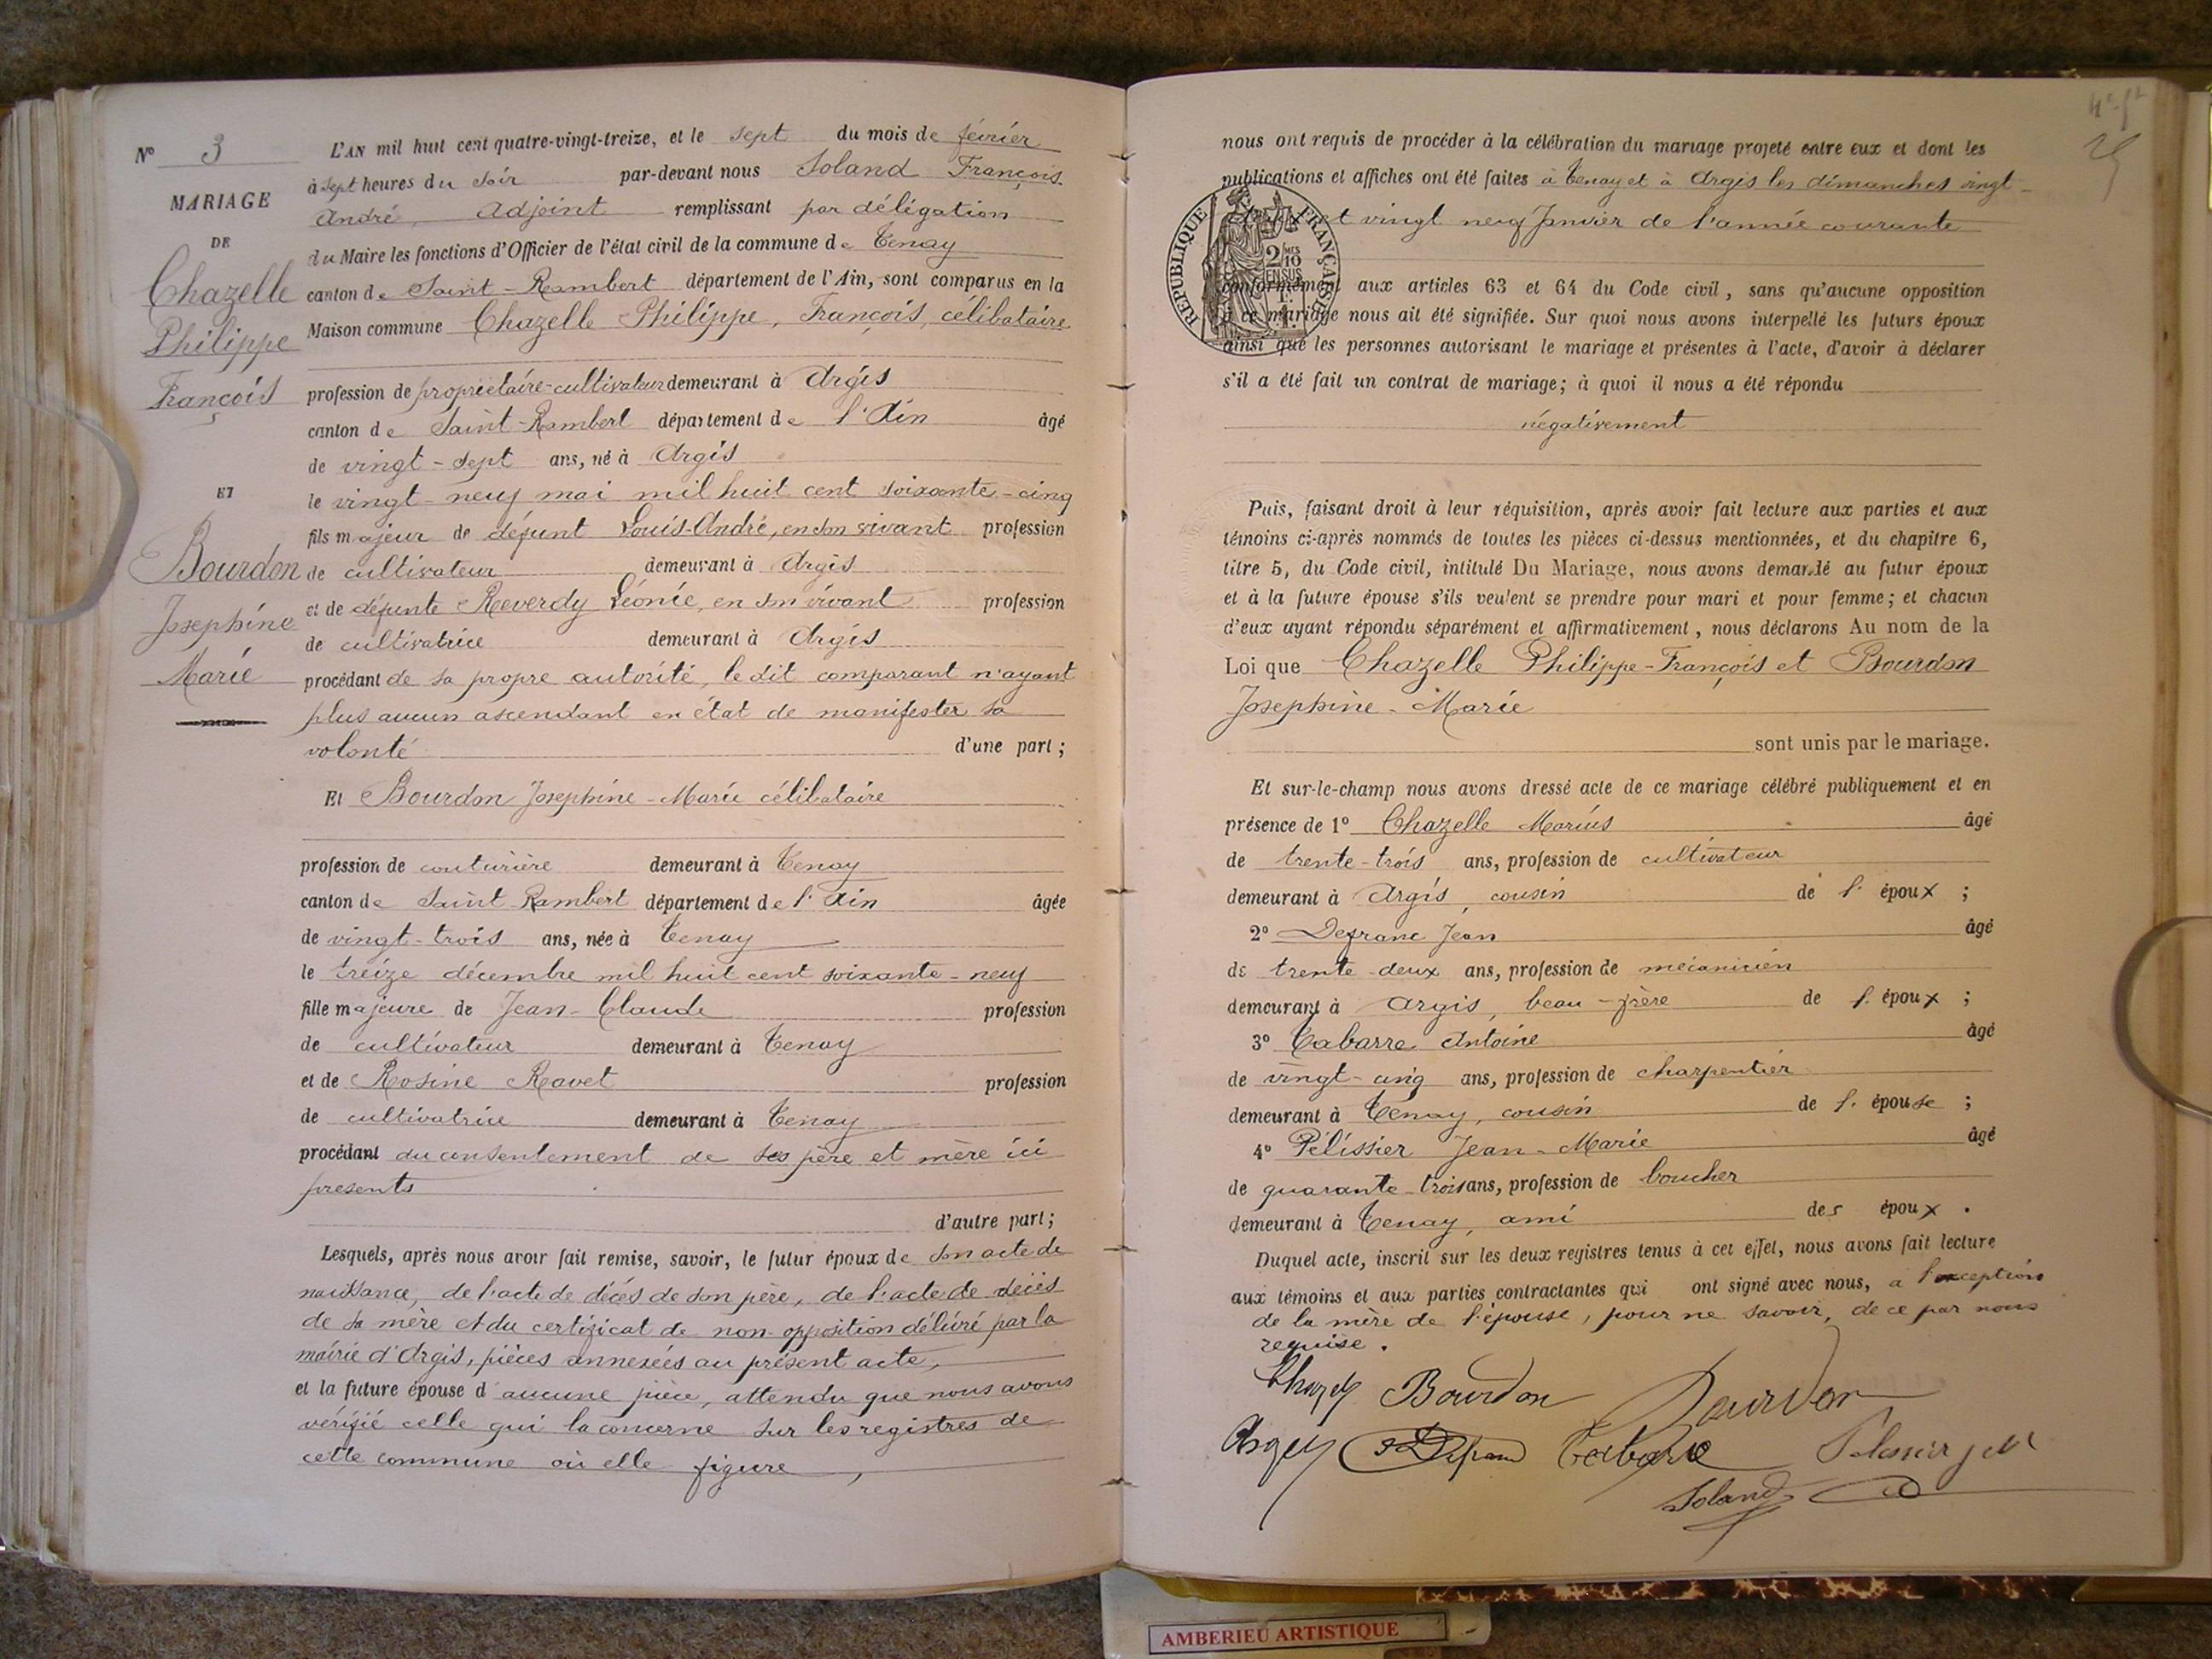 N° 3
MARIAGE
DE
Chazelle
Philippe
François
ET
Bourdon
Josephine
Marie
L'AN mil huit cent quatre-vingt-treize, et le sept du mois de février
à sept heures du soir par-devant nous Soland François
André, Adjoint remplissant par délégation
du Maire les fonctions d'Officier de l'état civil de la commune de Tenay
canton de Saint-Rambert département de l'Ain, sont comparus en la
Maison commune Chazelle Philippe, François, célibataire
profession de propriétaire-cultivateur demeurant à Argis
canton de Saint-Rambert département de l'Ain âgé
de vingt-sept ans, né à Argis
le vingt-neuf mai mil huit cent soixante-cinq
fils majeur de défunt Louis-André, en son vivant profession
de cultivateur demeurant à Argis
et de défunte Reverdy Léonie, en son vivant profession
de cultivatrice demeurant à Argis
procédant de sa propre autorité, le dit comparant n'ayant
plus aucun ascendant en état de manifester sa
volonté d'une part ;
Et Bourdon Josephine-Marie célibataire
profession de couturière demeurant à Tenay
canton de Saint Rambert département de l'Ain âgée
de vingt-trois ans, née à Tenay
le treize décembre mil huit cent soixante-neuf
fille majeure de Jean-Claude profession
de cultivateur demeurant à Tenay
et de Rosine Ravet profession
de cultivatrice demeurant à Tenay
procédant du consentement de ses père et mère ici
presents
d'autre part ;
Lesquels, après nous avoir fait remise, savoir, le futur époux de son acte de
naissance, de l'acte de décès de son père, de l'acte de décès
de sa mère et du certificat de non-opposition délivré par la
mairie d'Argis, pièces annexées au présent acte,
et la future épouse d'aucune pièce, attendu que nous avons
vérifié celle qui la concerne sur les registres de
cette commune où elle figure,
nous ont requis de procéder à la célébration du mariage projeté entre eux et dont les
publications et affiches ont été faites à Tenay et à Argis les dimanches vingt-
et vingt neuf Janvier de l'année courante
RÉPUBLIQUE FRANÇAISE
2/10 EN SUS
conformément aux articles 63 et 64 du Code civil, sans qu'aucune opposition
à ce mariage nous ait été signifiée. Sur quoi nous avons interpellé les futurs époux
ainsi que les personnes autorisant le mariage et présentes à l'acte, d'avoir à déclarer
s'il a été fait un contrat de mariage ; à quoi il nous a été répondu
négativement
Puis, faisant droit à leur réquisition, après avoir fait lecture aux parties et aux
témoins ci-après nommés de toutes les pièces ci-dessus mentionnées, et du chapitre 6,
titre 5, du Code civil, intitulé Du Mariage, nous avons demandé au futur époux
et à la future épouse s'ils veulent se prendre pour mari et pour femme ; et chacun
d'eux ayant répondu séparément et affirmativement, nous déclarons Au nom de la
Loi que Chazelle Philippe-François et Bourdon
Josephine-Marie
sont unis par le mariage.
Et sur-le-champ nous avons dressé acte de ce mariage célébré publiquement et en
présence de 1° Chazelle Marius âgé
de trente-trois ans, profession de cultivateur
demeurant à Argis, cousin de l'époux ;
2° Defranc Jean âgé
de trente-deux ans, profession de mécanicien
demeurant à Argis, beau-frère de l'époux ;
3° Tabarre Antoine âgé
de vingt-cinq ans, profession de charpentier
demeurant à Tenay, cousin de l'épouse ;
4° Pélissier Jean-Marie âgé
de quarante-trois ans, profession de boucher
demeurant à Tenay, ami des époux.
Duquel acte, inscrit sur les deux registres tenus à cet effet, nous avons fait lecture
aux témoins et aux parties contractantes qui ont signé avec nous, à l'exception
de la mère de l'épouse, pour ne savoir, de ce par nous
requise.
Bourdon Bourdon
Tabare
Soland
AMBERIEU ARTISTIQUE